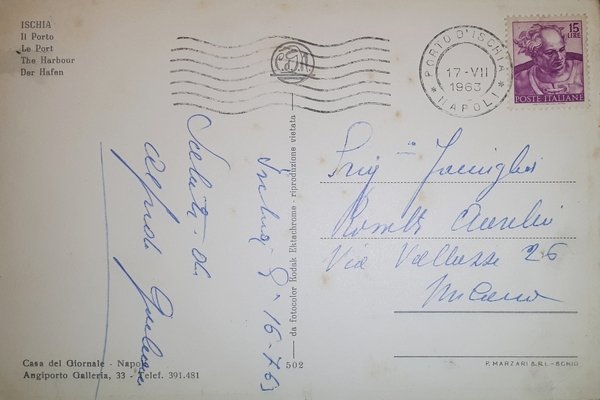 ISCHIA
Il Porto
Le Port
The Harbour
Der Hafen
PORTO D'ISCHIA
17-VII
1963
* NAPOLI *
15
LIRE
POSTE ITALIANE
da fotocolor Kodak Ektachrome - riproduzione vietata
Saluti da
16-7-63
Famiglia
Aurelio
Via Vallazze 26
Milano
Casa del Giornale - Napoli
Angiporto Galleria, 33 - Telef. 391.481
502
P. MARZARI S.R.L.-SCHIO